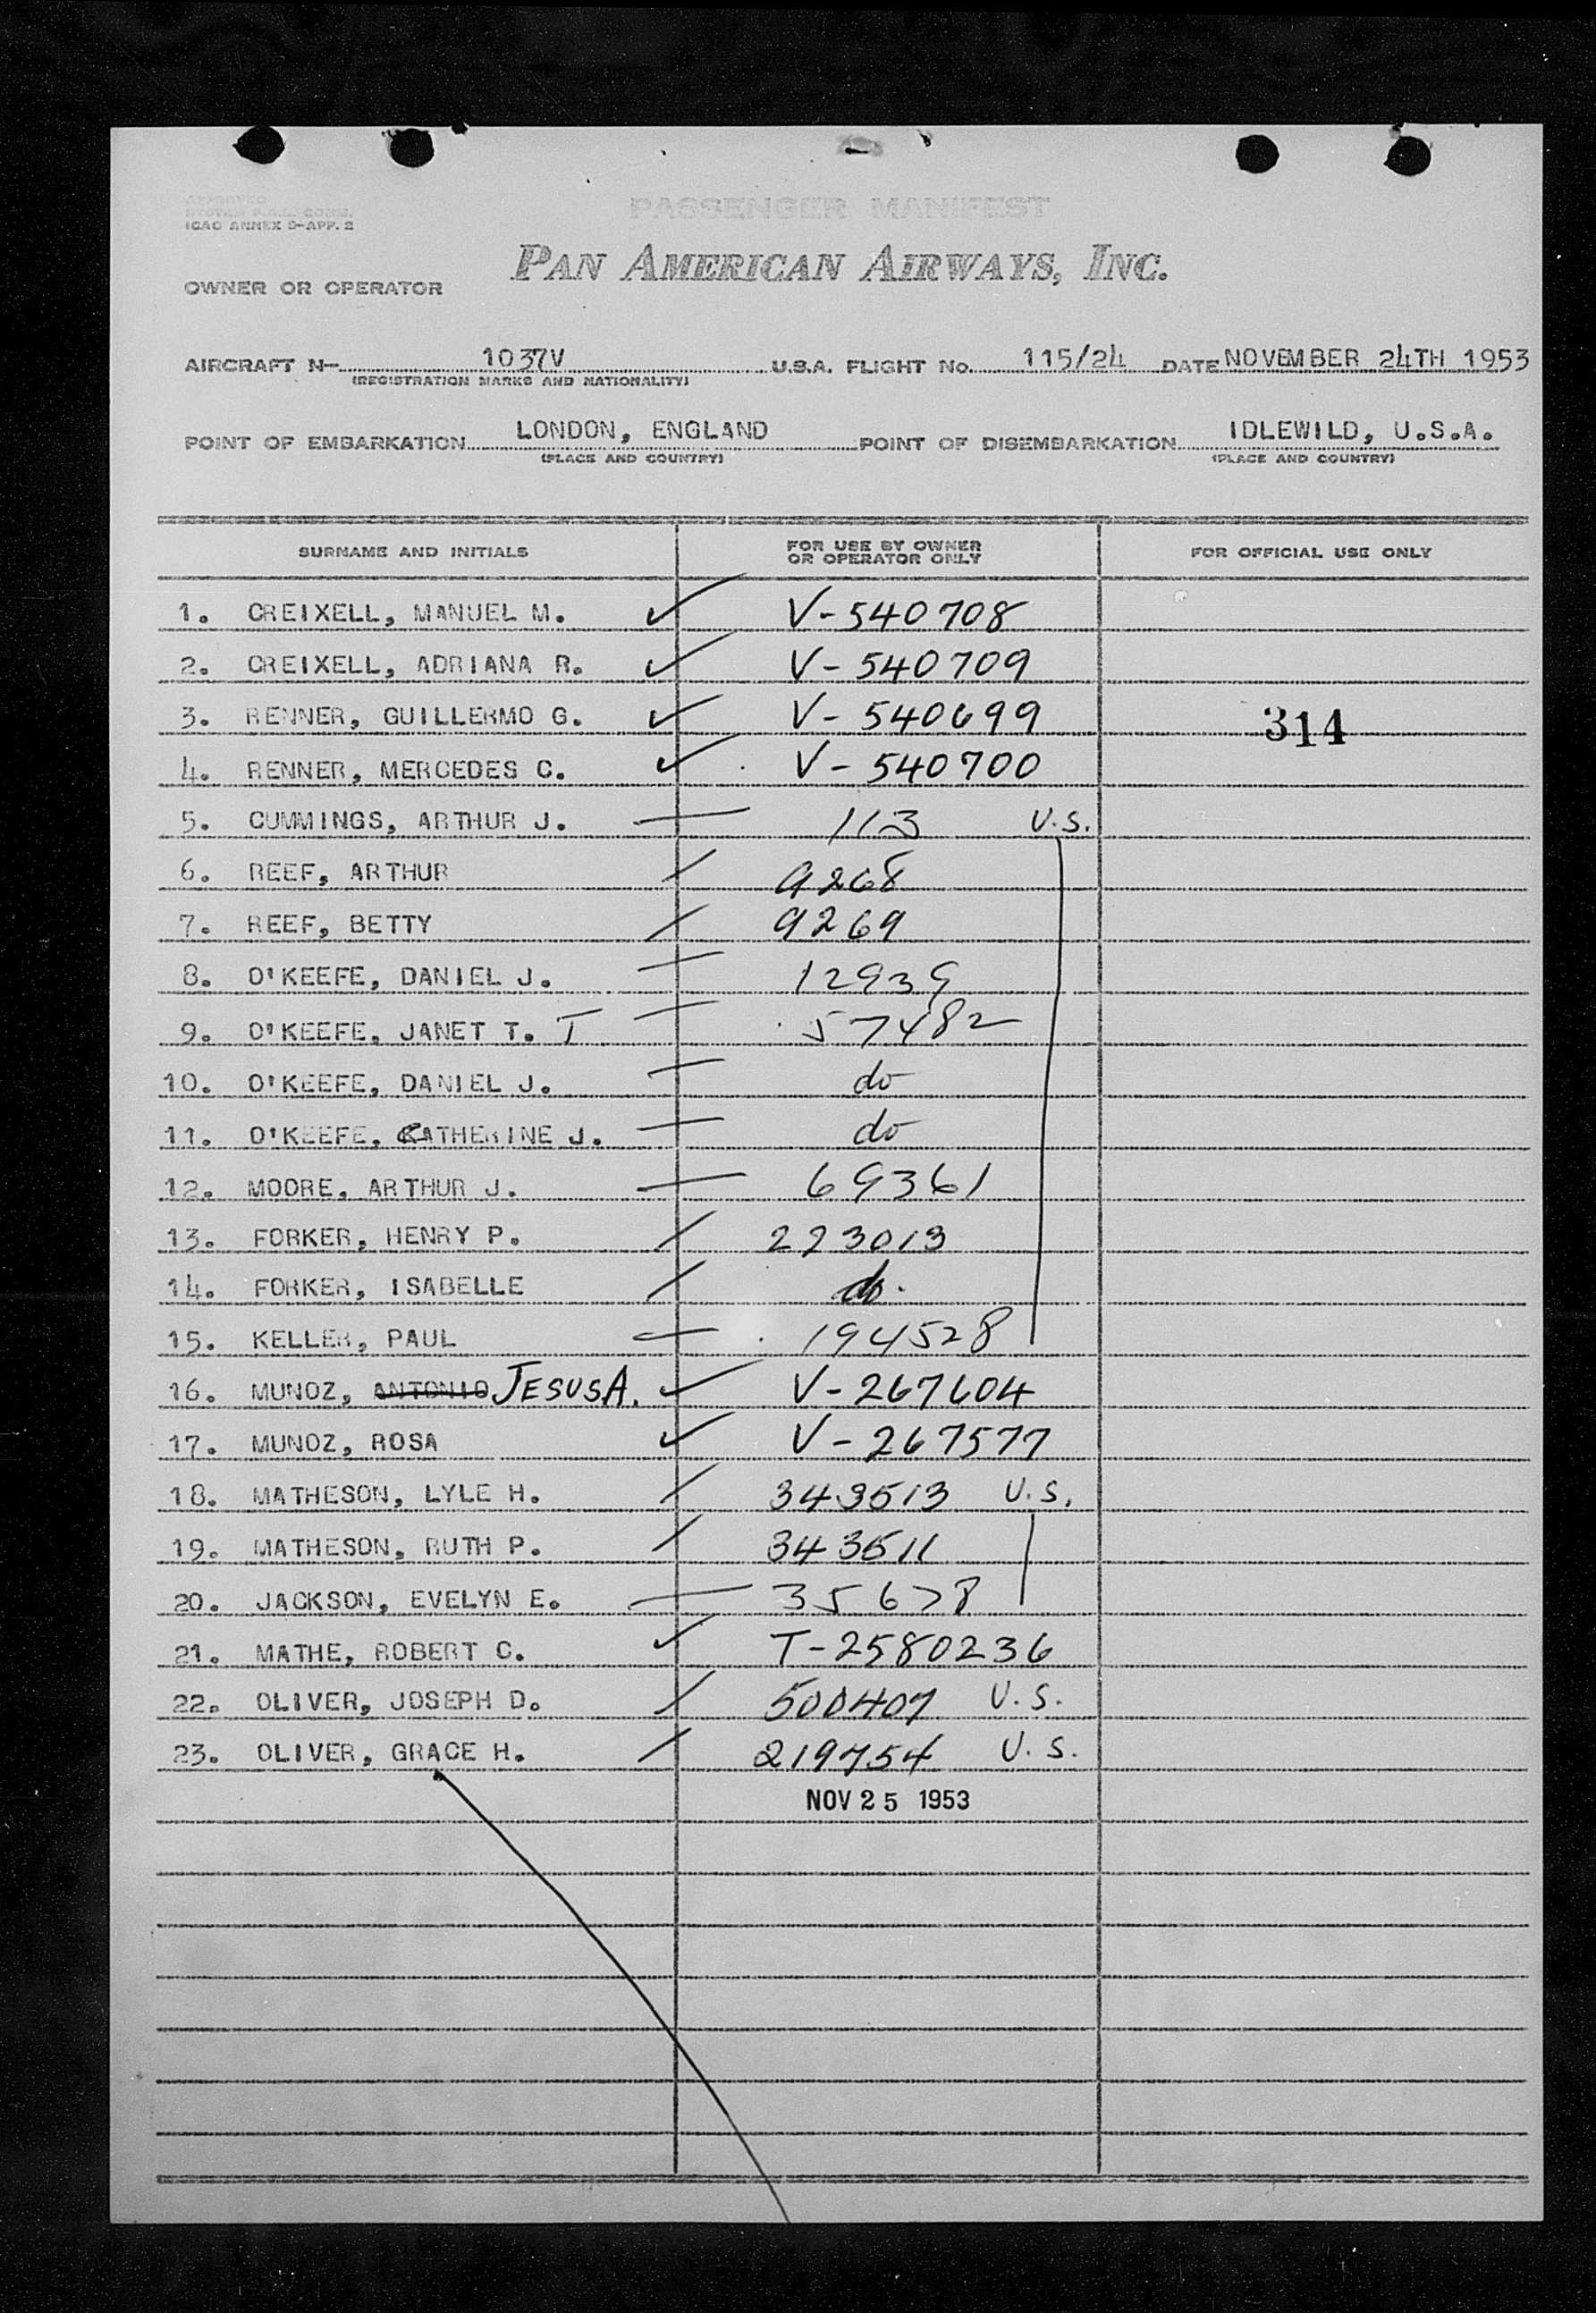 PASSENGER MANIFEST
APPROVED
ICAO ANNEX 9-APP. 2
PAN AMERICAN AIRWAYS, INC.
OWNER OR OPERATOR
AIRCRAFT N- 1037V U.S.A. FLIGHT No. 115/24 DATE NOVEMBER 24TH 1953
(REGISTRATION MARKS AND NATIONALITY)
POINT OF EMBARKATION LONDON, ENGLAND POINT OF DISEMBARKATION IDLEWILD, U.S.A.
(PLACE AND COUNTRY) (PLACE AND COUNTRY)
SURNAME AND INITIALS FOR USE BY OWNER OR OPERATOR ONLY FOR OFFICIAL USE ONLY
1. CREIXELL, MANUEL M. ✓ V-540708
2. CREIXELL, ADRIANA R. ✓ V-540709
3. RENNER, GUILLERMO G. ✓ V-540699 314
4. RENNER, MERCEDES C. ✓ V-540700
5. CUMMINGS, ARTHUR J. — 113 U.S.
6. REEF, ARTHUR / 9268
7. REEF, BETTY / 9269
8. O'KEEFE, DANIEL J. — 12939
9. O'KEEFE, JANET T. T — 57482
10. O'KEEFE, DANIEL J. — do
11. O'KEEFE, CATHERINE J. — do
12. MOORE, ARTHUR J. — 69361
13. FORKER, HENRY P. / 223013
14. FORKER, ISABELLE / do.
15. KELLER, PAUL — 194528
16. MUNOZ, ANTONIO JESUS A. ✓ V-267604
17. MUNOZ, ROSA ✓ V-267577
18. MATHESON, LYLE H. / 343513 U.S.
19. MATHESON, RUTH P. / 343511
20. JACKSON, EVELYN E. — 35678
21. MATHE, ROBERT C. ✓ T-2580236
22. OLIVER, JOSEPH D. / 500407 U.S.
23. OLIVER, GRACE H. / 219754 U.S.
NOV 25 1953